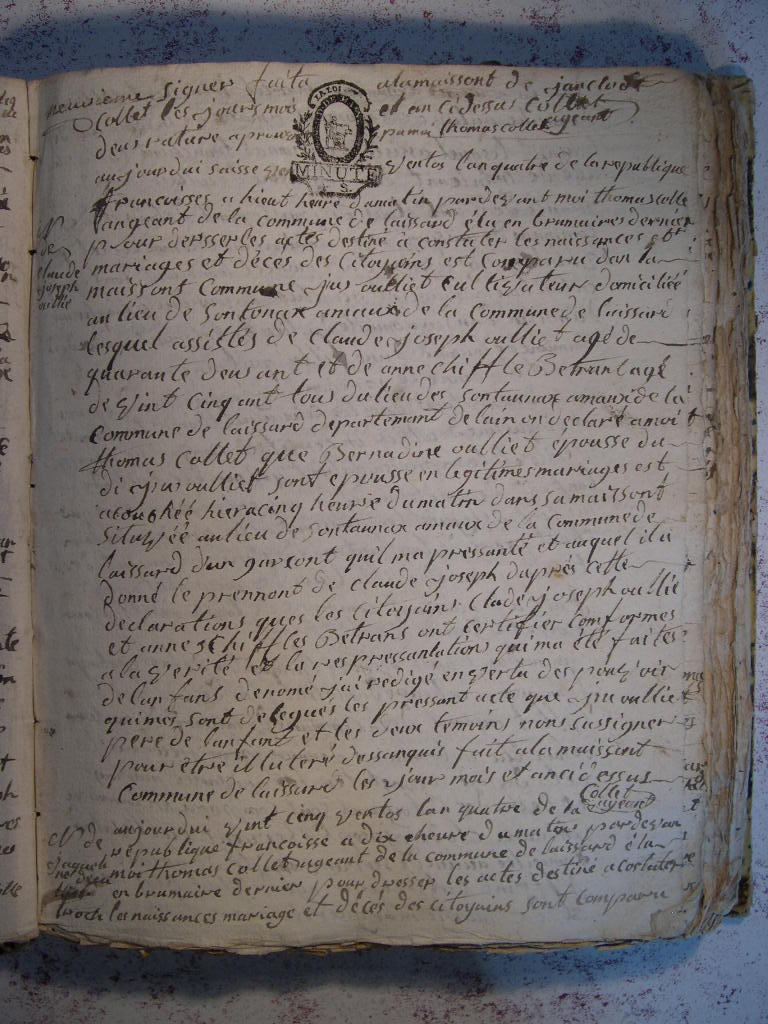 neuvisème signer fait a alamaissont de janclode
Collet les jours mois et an cidessus Collet
deus rature aprouvé parmoi thomas collet ageant
LA LOI
MINUTE
aujourdui saisse ventos lanquatre de la republique
francoisses a hieut heure dumatin pardevant moi thomas colle
angeant de la commune de laissard élu en brumaires dernier
pour dersser les actes destiné a constater les naissances et
mariages et décès des Citoyains est comparu dan la
maissons Commune jus oulliet cultivateur domiciliée
au lieu de Sontonax amaux de la Commune de laissard
lesquel assistés de Claude joseph oulliet agé de
quarante deus ant et de anne chiffle Betran lagé
de vint Cinq ant tous du lieu des Sontaunax amaux de la
Commune de laissard departement de lain on declaré a moi
thomas Collet que Bernadine oulliet epousse du
di jus oulliet sont epousse en legitimes mariages est
acouchée hier a cinq heure dumatin dans sa maissont
situyéé au lieu de Sontaunax amaux de la Commune de
laissard d'un garsont quil ma pressanté et auquel il a
donné le prennont de Claude joseph daprès cette
declarations ques les Citoijains Clade joseph oullie
et annes Chiffles Betrans ont certifier Comformes
a la verité et la respressantation qui ma été faites
de lanfans denomé jai redigé en vertu des pouvoir
qui mes sont delegués les pressant acte que jus oulliet
pere de lanfant et les deux temoins nons sussigner
pour etre illuteré dessanquis fait a la maissont
Commune de laissard les jour mois et an cidessus
Collet ageant
N de claude joseph oullie
aujourdui vint cinq ventos lan quatre de la
republique francoisse a dix eheure dumatin pardevan
moi thomas Collet ageant de la commune de laissard élu
en brumaire dernier pour dresser les actes destiné a costater
les naissances mariage et décès des citoyains sont Comparu
N de